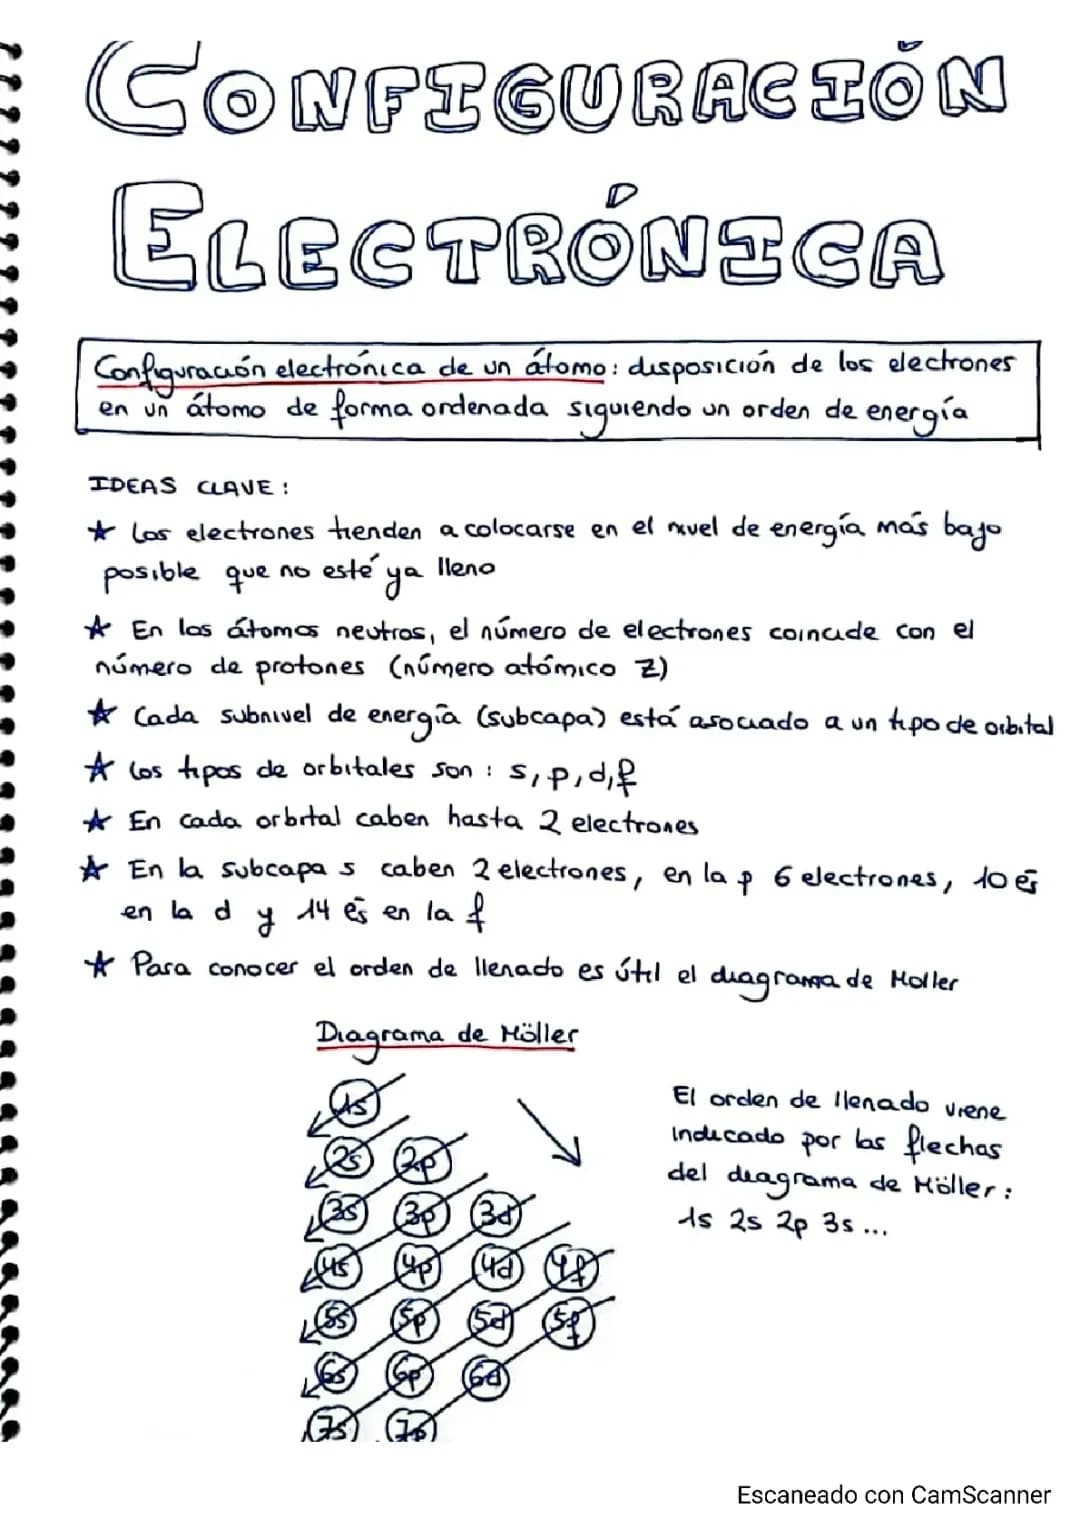 CONFIGURACIÓN
ELECTRÓNICA
Configuración electrónica de un átomo: disposición de los electrones
en un átomo de forma ordenada siguiendo un orden de energía
IDEAS CLAVE:
★ Los electrones tienden a colocarse en el nivel de energía más bajo
posible que no esté ya lleno
★ En los átomos neutros, el número de electrones coincide con el
número de protones (número atómico Z)
★ Cada subnivel de energía (subcapa) está asociado a un tipo de orbital
★ Los tipos de orbitales son: s, p, d, f
★ En cada orbital caben hasta 2 electrones
★ En la subcapa s caben 2 electrones, en la p 6 electrones, 10 ēs
en la d y 14 ēs en la f
★ Para conocer el orden de llenado es útil el diagrama de Moller
Diagrama de Möller
1s
2s 2p
3s 3p 3d
4s 4p 4d 4f
5s 5p 5d 5f
6s 6p 6d
7s 7p
El orden de llenado viene
indicado por las flechas
del diagrama de Möller:
1s 2s 2p 3s...
Escaneado con CamScanner